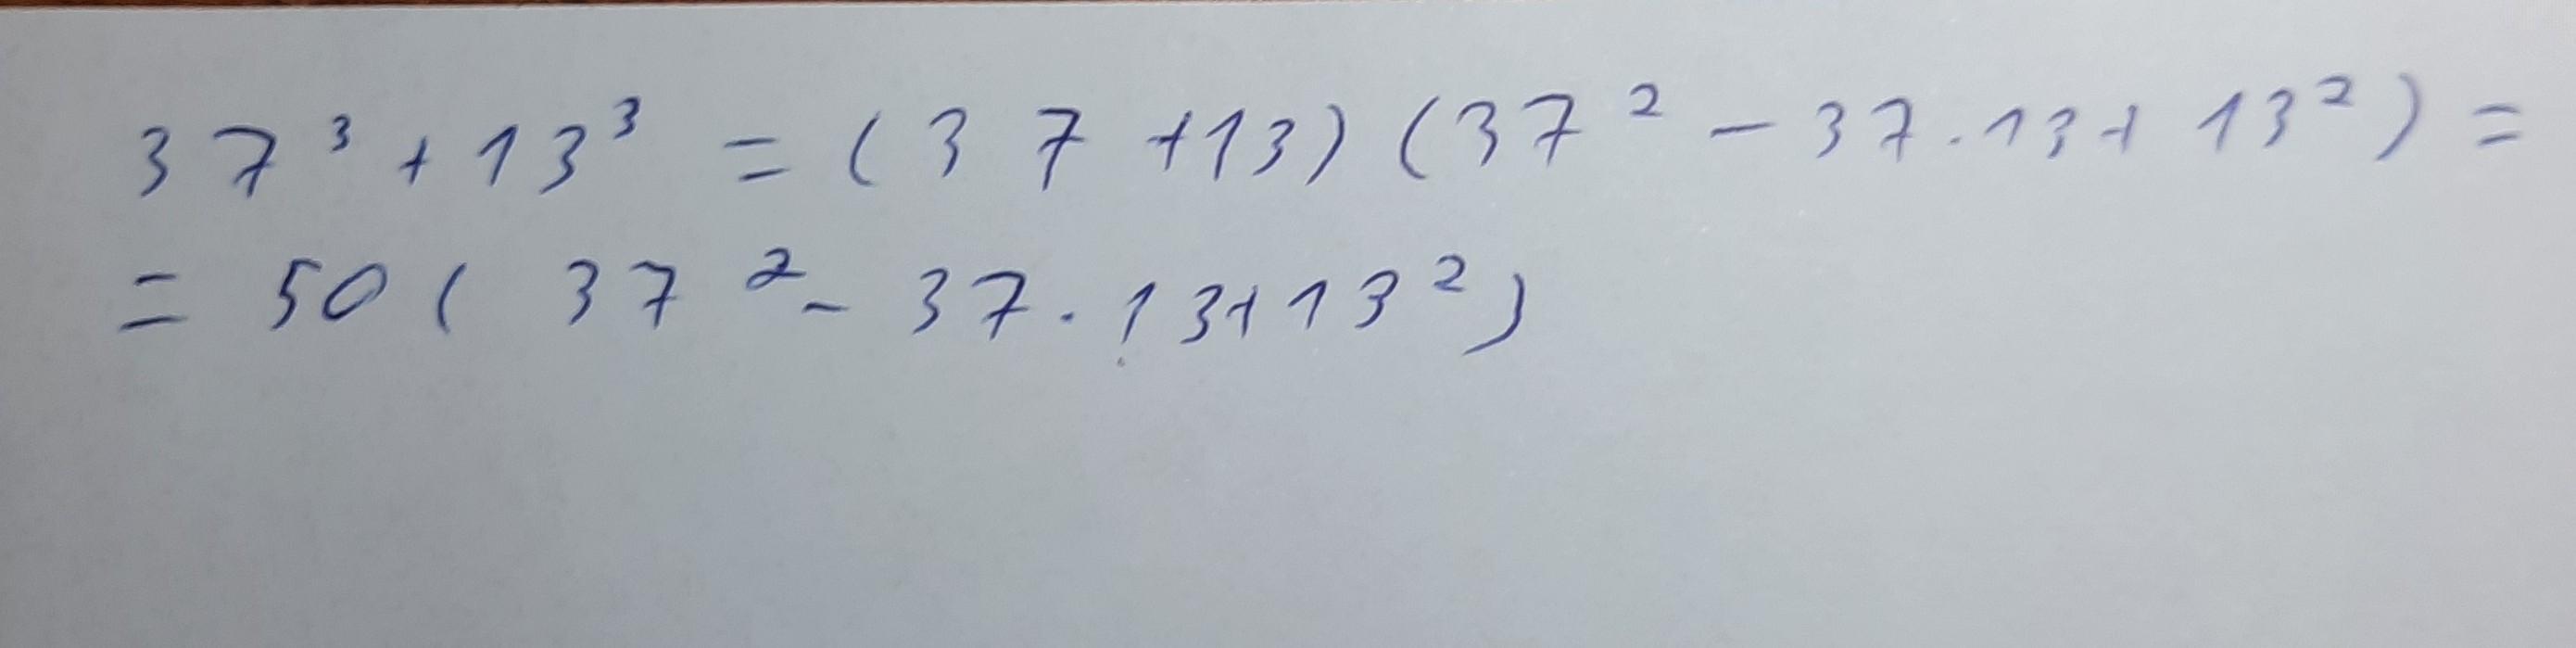 37³ + 13³ = (37 + 13) (37² - 37 · 13 + 13²) =
= 50 (37² - 37 · 13 + 13²)